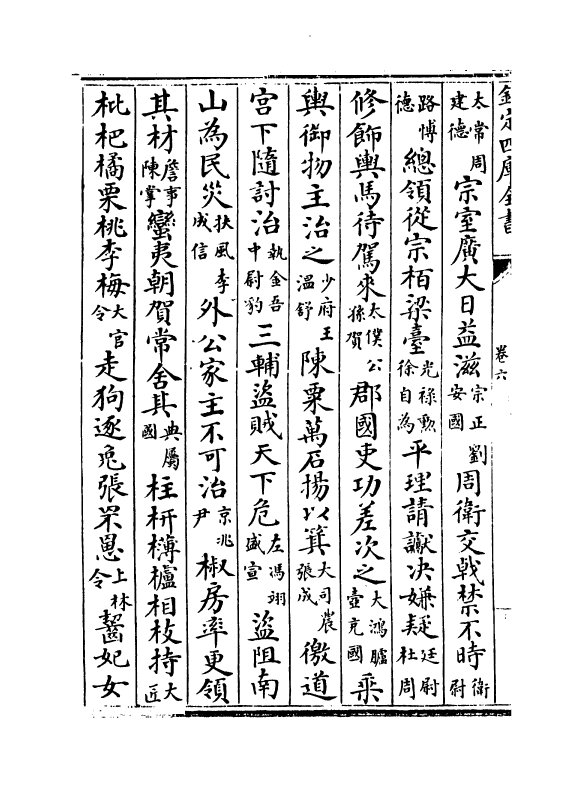 欽定四庫全書
卷六
太常周建德宗室廣大日益滋宗正劉安國周衛交戟禁不時衛尉
路愽德總領從宗栢梁臺光祿勲徐自為平理請讞决嫌疑廷尉杜周
修飾輿馬待駕來太僕公孫賀郡國吏功差次之大鴻臚壺充國乗
輿御物主治之少府王溫舒陳粟萬石揚以箕大司農張成徼道
宫下隨討治執金吾中尉豹三輔盜賊天下危左馮翊盛宣盜阻南
山為民災扶風李成信外公家主不可治京兆尹椒房率更領
其材詹事陳掌蠻夷朝賀常舍其典屬國柱枅欂櫨相枝持大匠
枇杷橘栗桃李梅大官令走狗逐兎張罘罳上林令齧妃女